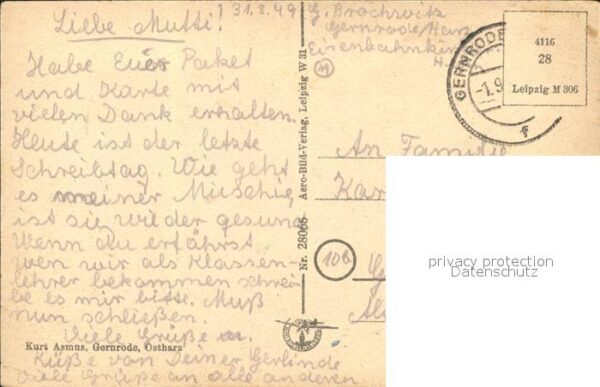 Liebe Mutti!
31.8.49
Habe Euer Paket
und Karte mit
vielen Dank erhalten.
Heute ist der letzte
Schreibtag. Wie geht
es meiner Muschi,
ist sie wider gesund
Wenn du erfährst
wen wir als Klassen-
lehrer bekommen schrei
be es mir bitte. Muß
nun schließen.
Viele Grüße u.
Küße von Deiner Gerlinde
Viele Grüße an alle anderen
Kurt Asmus, Gernrode, Ostharz
Nr. 28065 Aero-Bild-Verlag, Leipzig W 31
G. Brochwitz
Gernrode Harz
Eisenbahnkin
GERNRODE
-1.9
f
4116
28
Leipzig M 306
An Familie
Kar
10b
privacy protection
Datenschutz